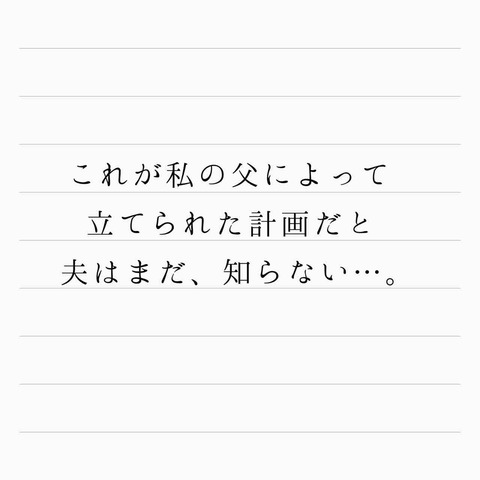 これが私の父によって
立てられた計画だと
夫はまだ、知らない…。